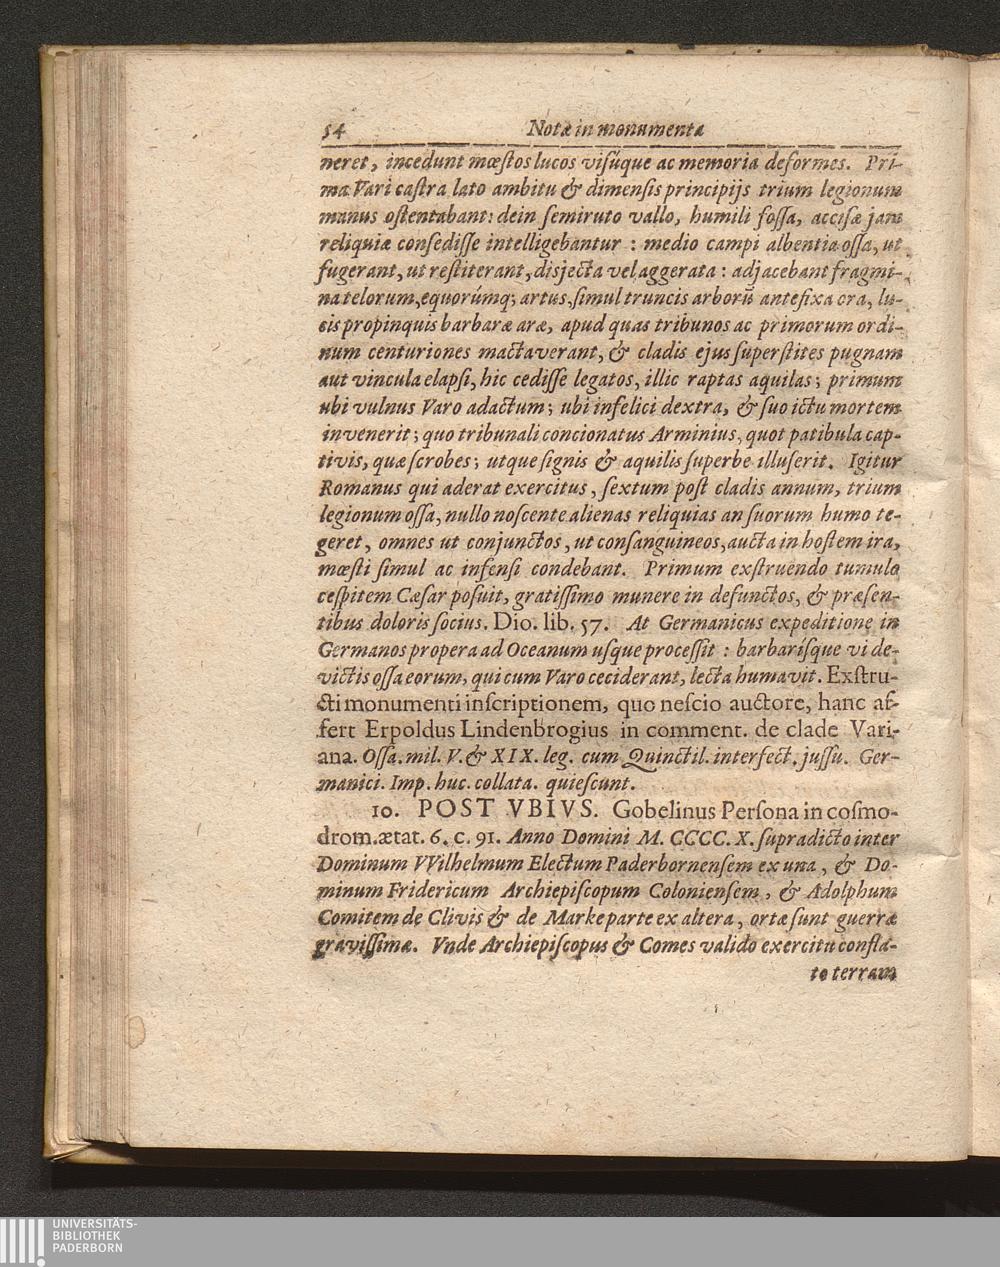 54 Notæ in monumenta
neret, incedunt mœſtos lucos viſúque ac memoria deformes. Pri-
ma Vari caſtra lato ambitu & dimenſis principijs trium legionum
manus oſtentabant: dein ſemiruto vallo, humili foſſa, acciſæ jam
reliquiæ conſediſſe intelligebantur : medio campi albentia oſſa, ut
fugerant, ut reſtiterant, disjecta vel aggerata : adjacebant fragmi-
na telorum, equorúmq; artus, ſimul truncis arborū antefixa ora, lu-
cis propinquis barbaræ aræ, apud quas tribunos ac primorum ordi-
num centuriones mactaverant, & cladis ejus ſuperſtites pugnam
aut vincula elapſi, hic cediſſe legatos, illic raptas aquilas; primum
ubi vulnus Varo adactum; ubi infelici dextra, & ſuo ictu mortem
invenerit; quo tribunali concionatus Arminius, quot patibula cap-
tivis, quæ ſcrobes; utque ſignis & aquilis ſuperbe illuſerit. Igitur
Romanus qui aderat exercitus, ſextum poſt cladis annum, trium
legionum oſſa, nullo noſcente alienas reliquias an ſuorum humo te-
geret, omnes ut conjunctos, ut conſanguineos, aucta in hoſtem ira,
mœſti ſimul ac infenſi condebant. Primum exſtruendo tumulo
ceſpitem Cæſar poſuit, gratiſſimo munere in defunctos, & præſen-
tibus doloris ſocius. Dio. lib. 57. At Germanicus expeditione in
Germanos propera ad Oceanum uſque proceſſit : barbaríſque vi de-
victis oſſa eorum, qui cum Varo ceciderant, lecta humavit. Exſtru-
cti monumenti inſcriptionem, quo neſcio auctore, hanc af-
fert Erpoldus Lindenbrogius in comment. de clade Vari-
ana. Oſſa. mil. V. & XIX. leg. cum Quinctil. interfect. juſſu. Ger-
manici. Imp. huc. collata. quieſcunt.
10. POST VBIVS. Gobelinus Perſona in coſmo-
drom. ætat. 6. c. 91. Anno Domini M. CCCC. X. ſupradicto inter
Dominum VVilhelmum Electum Paderbornenſem ex una, & Do-
minum Fridericum Archiepiſcopum Colonienſem, & Adolphum
Comitem de Clivis & de Marke parte ex altera, ortæ ſunt guerræ
graviſſimæ. Vnde Archiepiſcopus & Comes valido exercitu confla-
to terram
UNIVERSITÄTS-
BIBLIOTHEK
PADERBORN